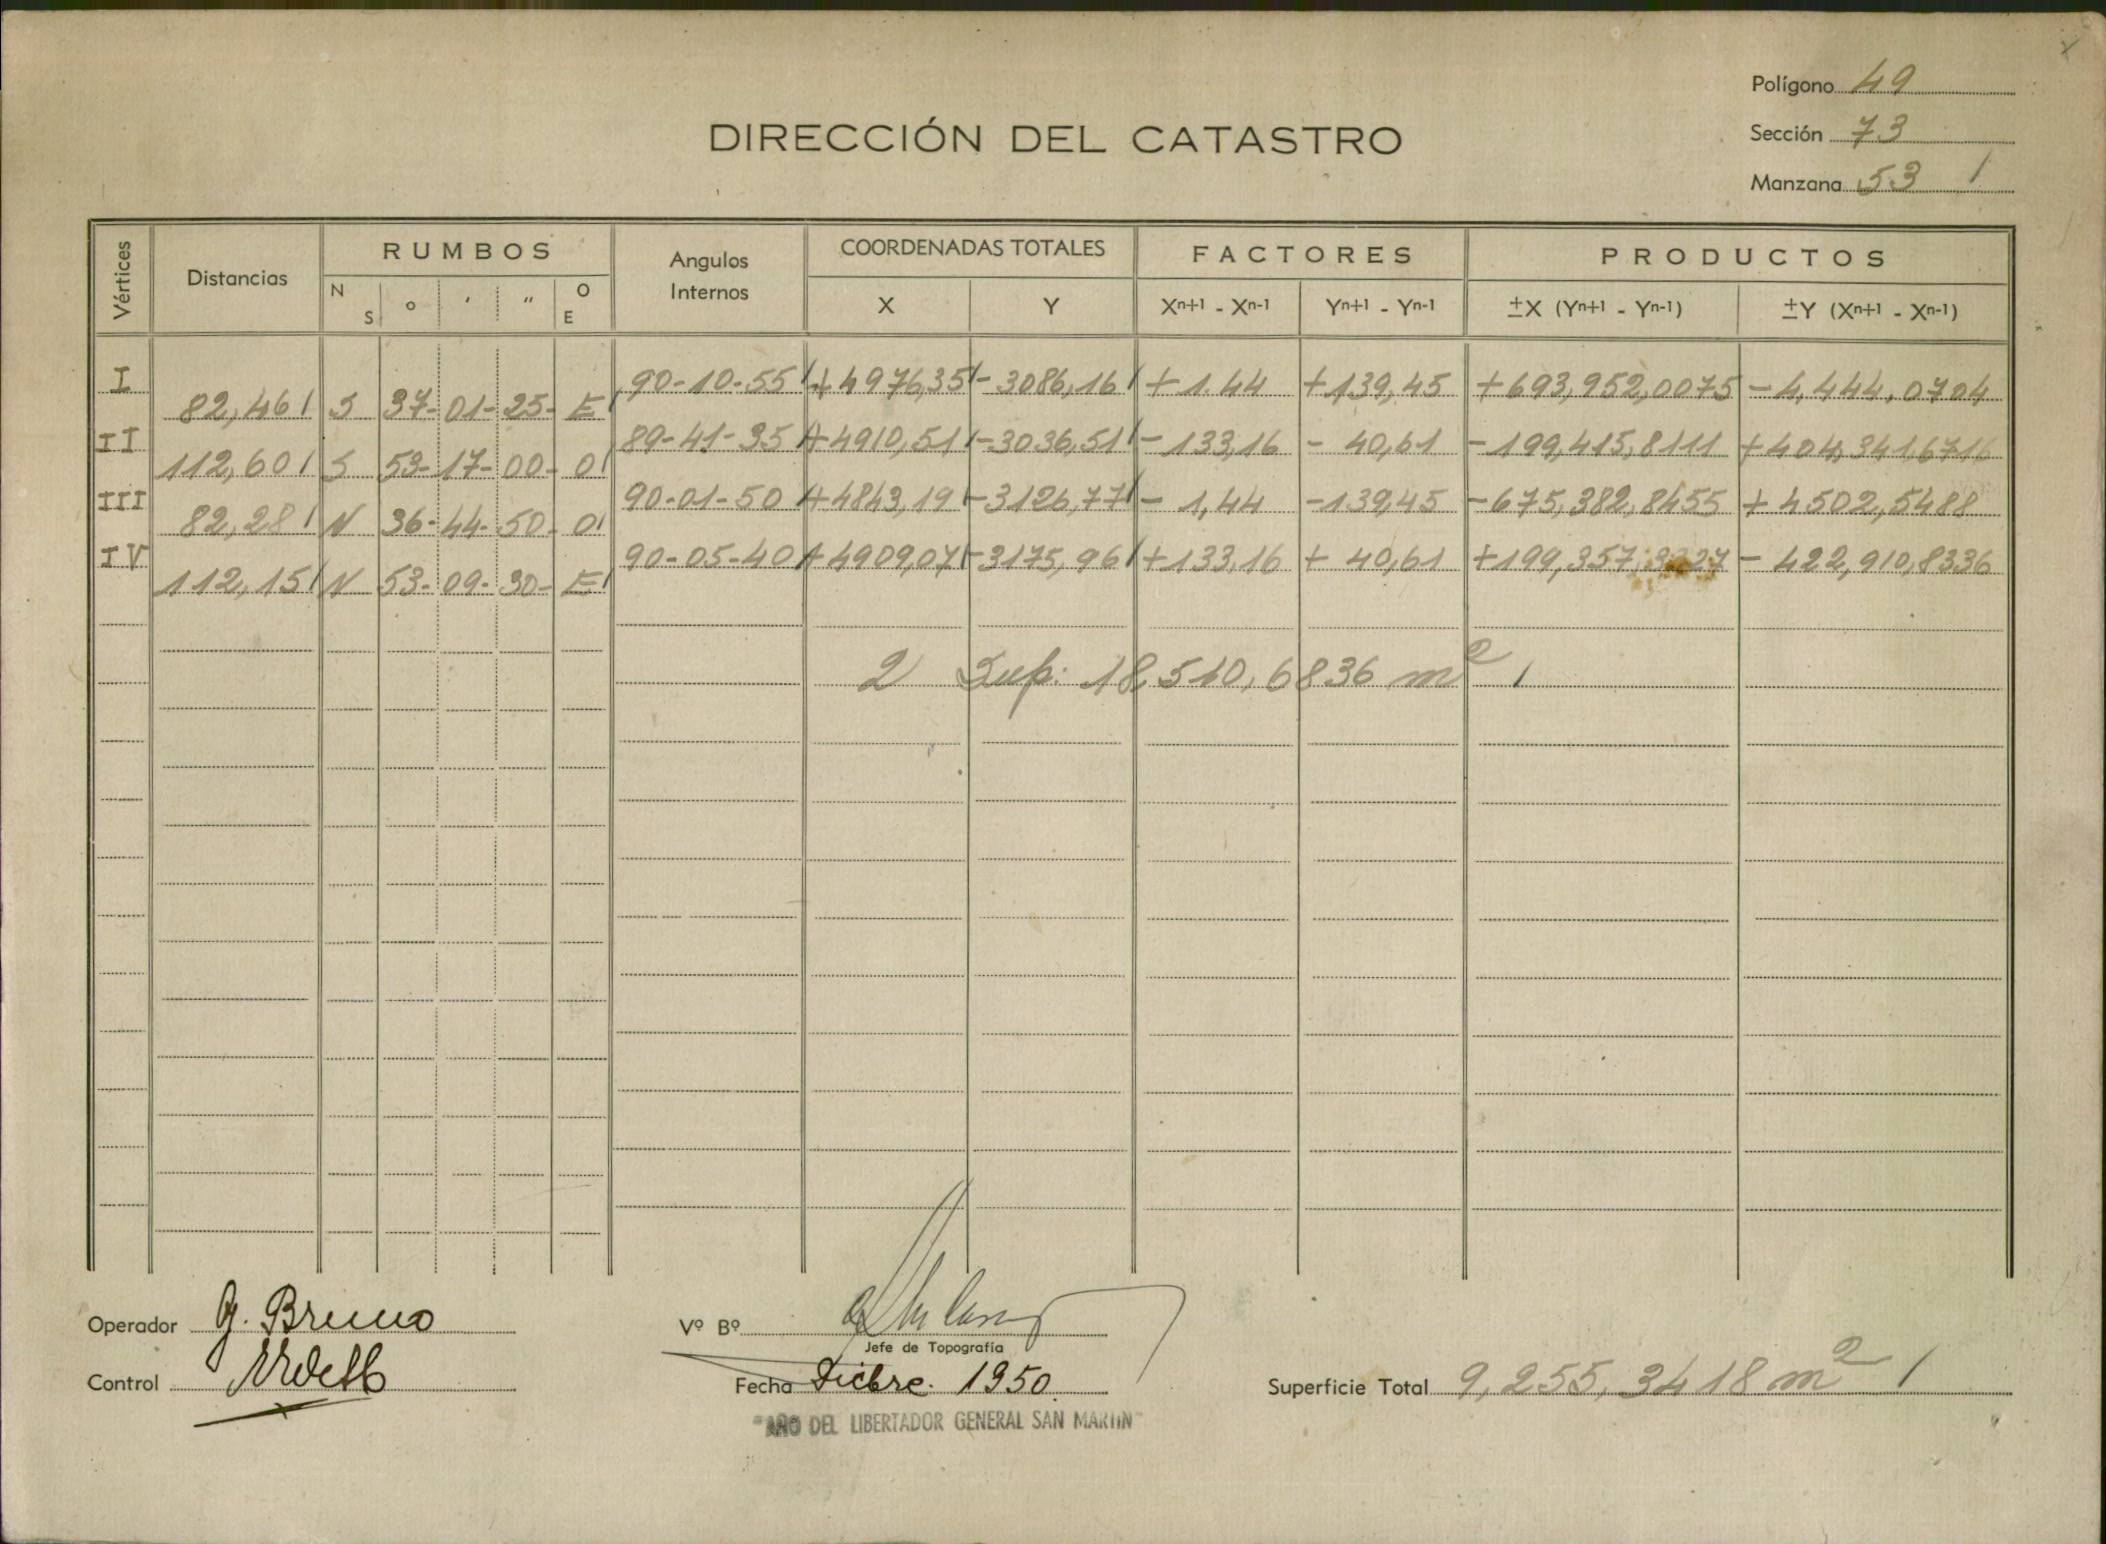 Polígono 49
DIRECCIÓN DEL CATASTRO
Sección 73
Manzana 53
Vértices Distancias RUMBOS N S ° ' " O E Angulos Internos COORDENADAS TOTALES X Y FACTORES Xn+1 - Xn-1 Yn+1 - Yn-1 PRODUCTOS ±X (Yn+1 - Yn-1) ±Y (Xn+1 - Xn-1)
I 90-10-55 +4976,35 -3086,16 +1.44 +139,45 +693,952,0075 -4,444,0704
82,46 S 37-01-25-E
II 89-41-35 +4910,51 -3036,51 -133,16 -40,61 -199,415,8111 +404,341,6716
112,60 S 53-17-00-O
III 90-01-50 +4843,19 -3126,77 -1,44 -139,45 -675,382,8455 +4502,5488
82,28 N 36-44-50-O
IV 90-05-40 +4909,07 -3175,96 +133,16 +40,61 +199,357,3327 -422,910,8336
112,15 N 53-09-30-E
2 Sup: 18,510,6836 m2
Operador G. Bruno
Vº Bº
Jefe de Topografía
Control
Fecha Dicbre. 1950.
Superficie Total 9,255,3418 m2
"AÑO DEL LIBERTADOR GENERAL SAN MARTIN"